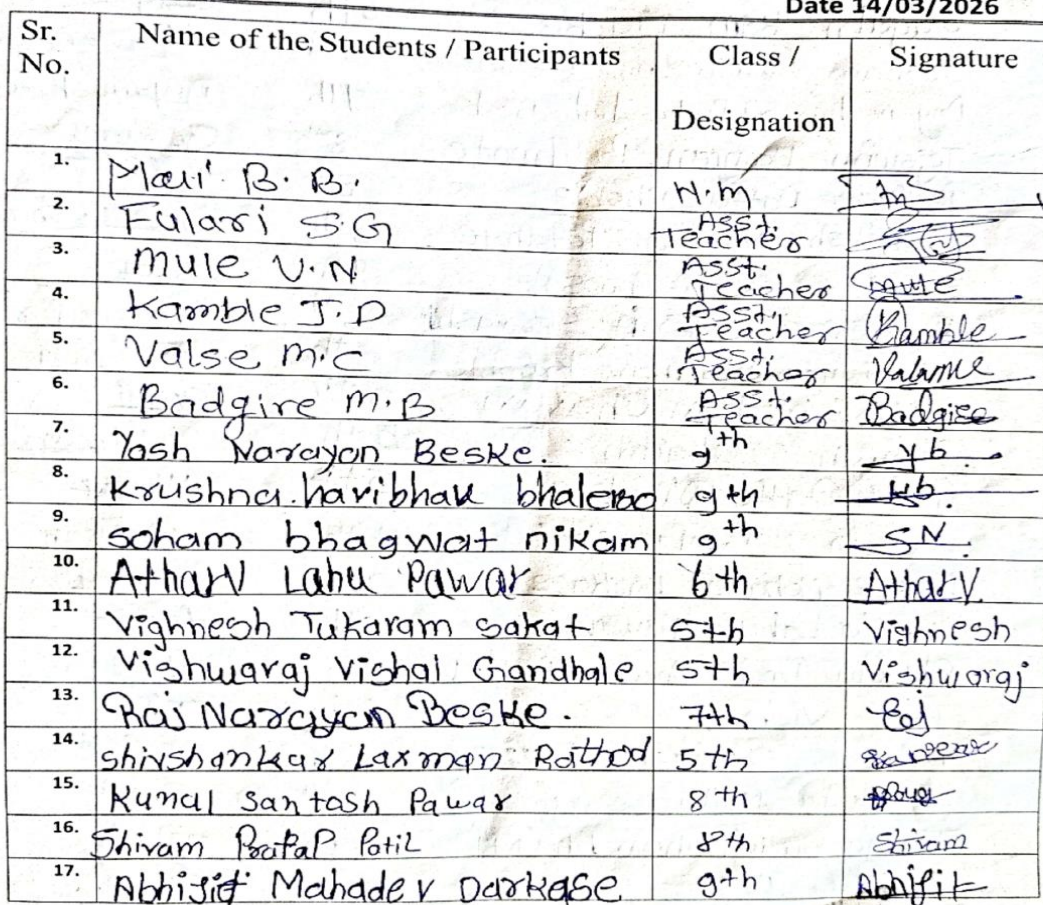 Date 14/03/2026
Sr. No. Name of the Students / Participants Class / Designation Signature
1. Mali B. B. H.M
2. Fulari S.G Asst. Teacher
3. Mule V.N. Asst. Teacher Mule
4. Kamble J.D Asst. Teacher Kamble
5. Valse M.C Asst. Teacher
6. Badgire M.B Asst. Teacher Badgire
7. Yash Narayan Beske. 9th yb.
8. Krushna haribhau bhalerao 9th kb.
9. soham bhagwat nikam 9th SN.
10. Atharv Lahu Pawar 6th Atharv.
11. Vighnesh Tukaram sakat 5th Vighnesh
12. Vishwaraj Vishal Gandhale 5th Vishwaraj
13. Raj Narayan Beske. 7th. Raj
14. shivshankar Laxman Rathod 5th
15. Kunal Santosh Pawar 8th
16. Shivam Pratap Patil 8th Shivam
17. Abhijit Mahadev Darkase 9th Abhijit